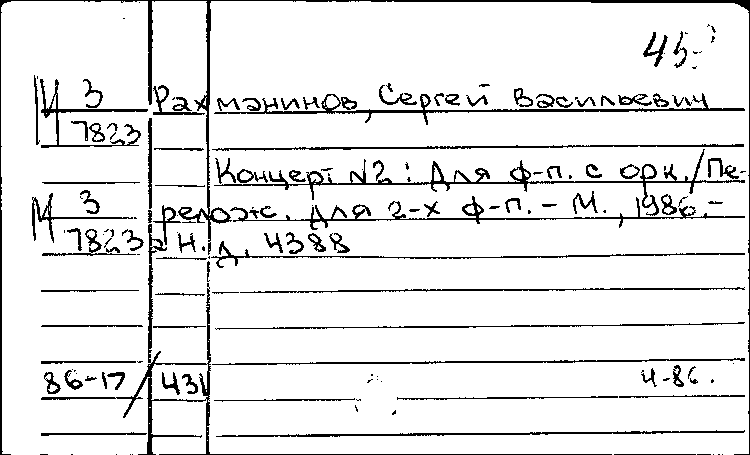 45-
М 3 Рахманинов, Сергей Васильевич
7823
Концерт №2: Для ф-п. с орк./Пе-
М 3 релож. для 2-х ф-п. - М., 1986. -
7823а Н.д. 4388
86-17/431 4-86.